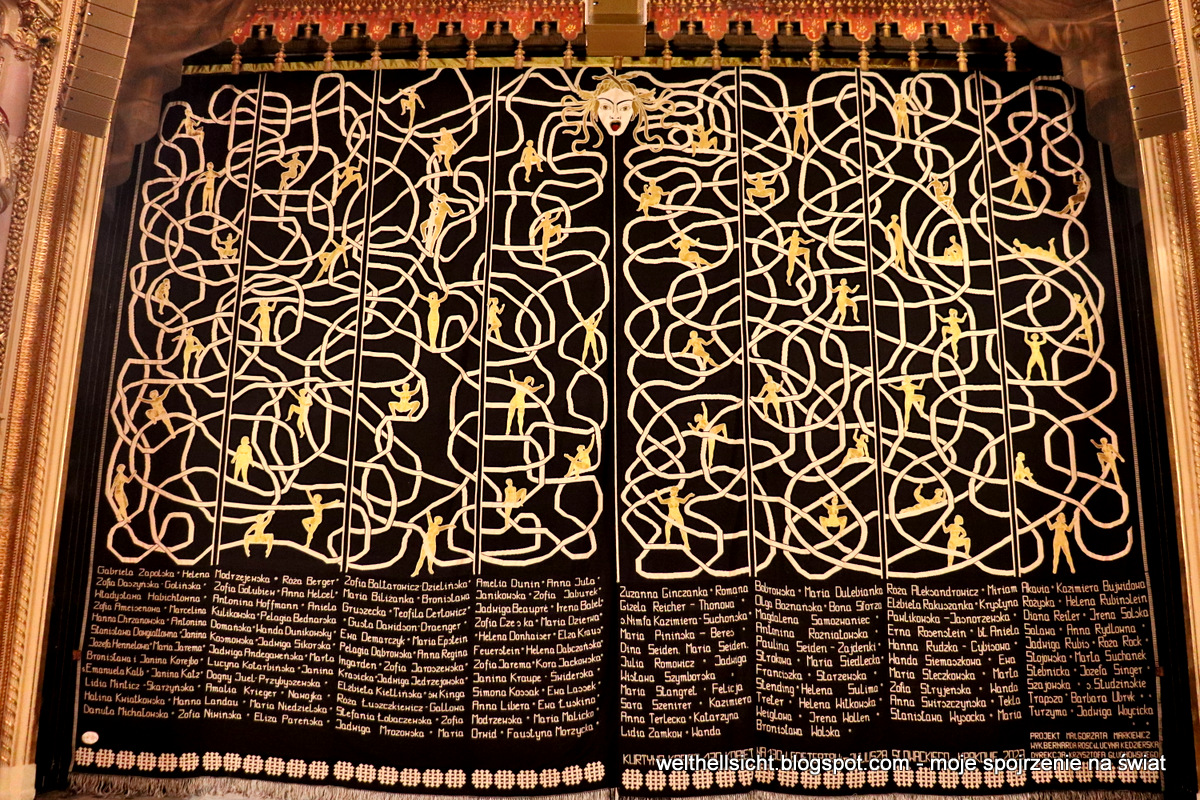 Gabriela Zapolska • Helena Modrzejewska • Róża Berger
Zofia Daszyńska - Golińska • Zofia Gołubiew • Anna Helcel
Władysława Habichtówna • Antonina Hoffmann • Aniela
Zofia Ameisenowa • Marcelina Kulikowska • Pelagia Bednarska
Hanna Chrzanowska • Antonina Domańska • Wanda Dunikowsky
Stanisława Dowgiałłówna • Janina Kosmowska • Jadwiga Sikorska
Józefa Hennelowa • Maria Jarema • Jadwiga Andegaweńska • Marta
Bronisława i Janina Korejbo • Lucyna Kotarbińska • Janina
s. Emanuela Kalb • Janina Katz • Dagny Juel-Przybyszewska
Lidia Minticz - Skarżyńska • Amalia Krieger • Nawojka
Malina Kwiatkowska • Hanna Landau • Maria Niedzielska
Danuta Michałowska • Zofia Niwińska • Eliza Pareńska
Zofia Baltarowicz-Dzielińska
Maria Bilizanka • Bronisława
Gruszecka • Teofila Certowicz
Gusta Dawidson-Draenger
Ewa Demarczyk • Maria Epstein
Pelagia Dąbrowska • Anna Regina
Ingarden • Zofia Jaroszewska
Krasicka • Jadwiga Jędrzejowska
Elżbieta Kiełlińska • św. Kinga
Róża Łuszczkiewicz - Gallowa
Stefania Łobaczewska • Zofia
Jadwiga Mrozowska • Maria
Amelia Dunin • Anna Juta
Janikowska • Zofia Jaburek
Jadwiga Beaupré • Irena Babel
Zofia Czeska • Maria Dziewa
Helena Donhaiser • Elza Kraus
Feuerstein • Helena Dąbczańska
Zofia Jarema • Kora Jackowska
Janina Kraupe - Świderska
Simona Kossak • Ewa Lassek
Anna Libera • Ewa Łuskina
Modrzewska • Maria Malicka
Orwid • Faustyna Morzycka
Zuzanna Ginczanka • Romana
Gizela Reicher - Thonowa
s. Nimfa Kazimiera Suchońska
Maria Pinińska - Bereś
Dina Seiden, Maria Seiden
Julia Romowicz • Jadwiga
Wisława Szymborska
Maria Stangret • Felicja
Sara Szenirer • Kazimiera
Anna Terlecka • Katarzyna
Lidia Zamkow • Wanda
Bobrowska • Maria Dulębianka
Olga Boznańska • Bona Sforza
Magdalena Samozwaniec
Antonina Rozniatowska
Paulina Seiden - Zajdenki
Strokowa • Maria Siedlecka
Franciszka • Starzewska
Stending • Helena Sulima
Treter • Helena Witkowska
Weiglowa • Irena Wollen
Bronisława Wolska
Róża Aleksandrowicz • Miriam
Elżbieta Rakuszanka • Krystyna
Pawlikowska - Jasnorzewska
Erna Rosenstein • bł. Aniela
Hanna Rudzka - Cybisowa
Wanda Siemaszkowa • Ewa
Maria Steczkowska • Marta
Zofia Stryjeńska • Wanda
Anna Świrszczyńska • Tekla
Stanisława Wysocka • Maria
Akavia • Kazimiera Bujwidowa
Rożyska • Helena Rubinstein
Diana Reiter • Irena Solska
Salawa • Anna Rydlówna
Jadwiga Rubiś • Róża Rock
Stojowska • Marta Suchanek
Stebnicka • Józefa Singer
Szajowska • s. Studzińskie
Trapszo • Barbara Ubryk
Turzyma • Jadwiga Woycicka
PROJEKT MAŁGORZATA MARKIEWICZ
WYK. BERNARDA ROŚĆ I LUCYNA KĘDZIERSKA
DYREKCJA KRZYSZTOFA GŁUCHOWSKIEGO
KRAKOWIE 2023
welthellsicht.blogspot.com - moje spojrzenie na świat